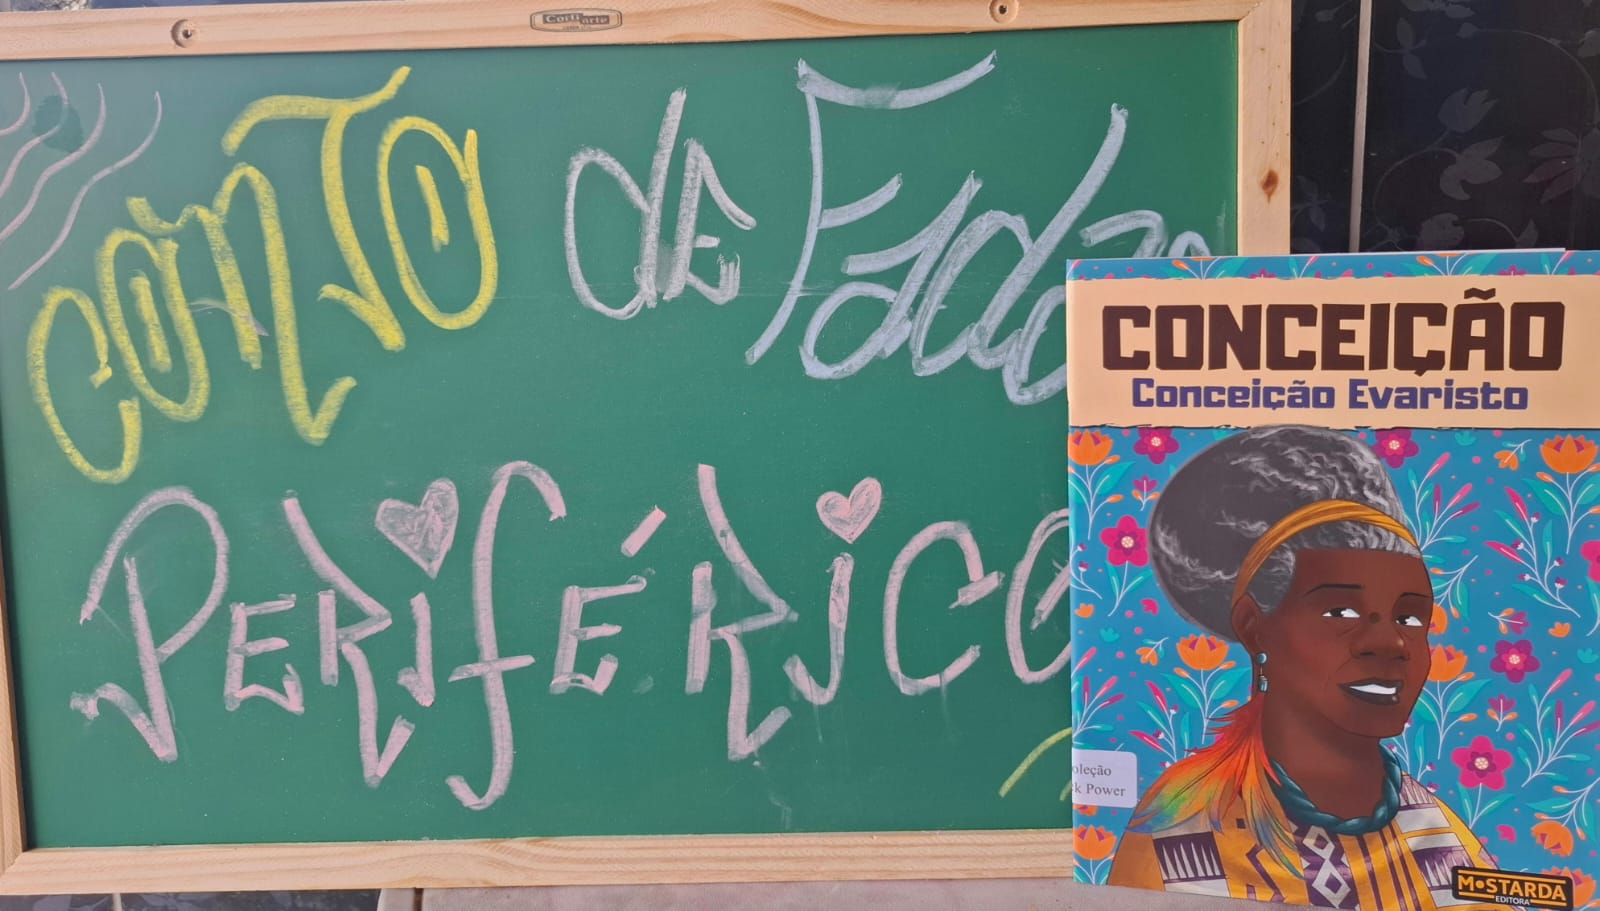 Corti arte
CONTO de Fadas
PERIFÉRICO
CONCEIÇÃO
Conceição Evaristo
oleção
k Power
MOSTARDA
EDITORA